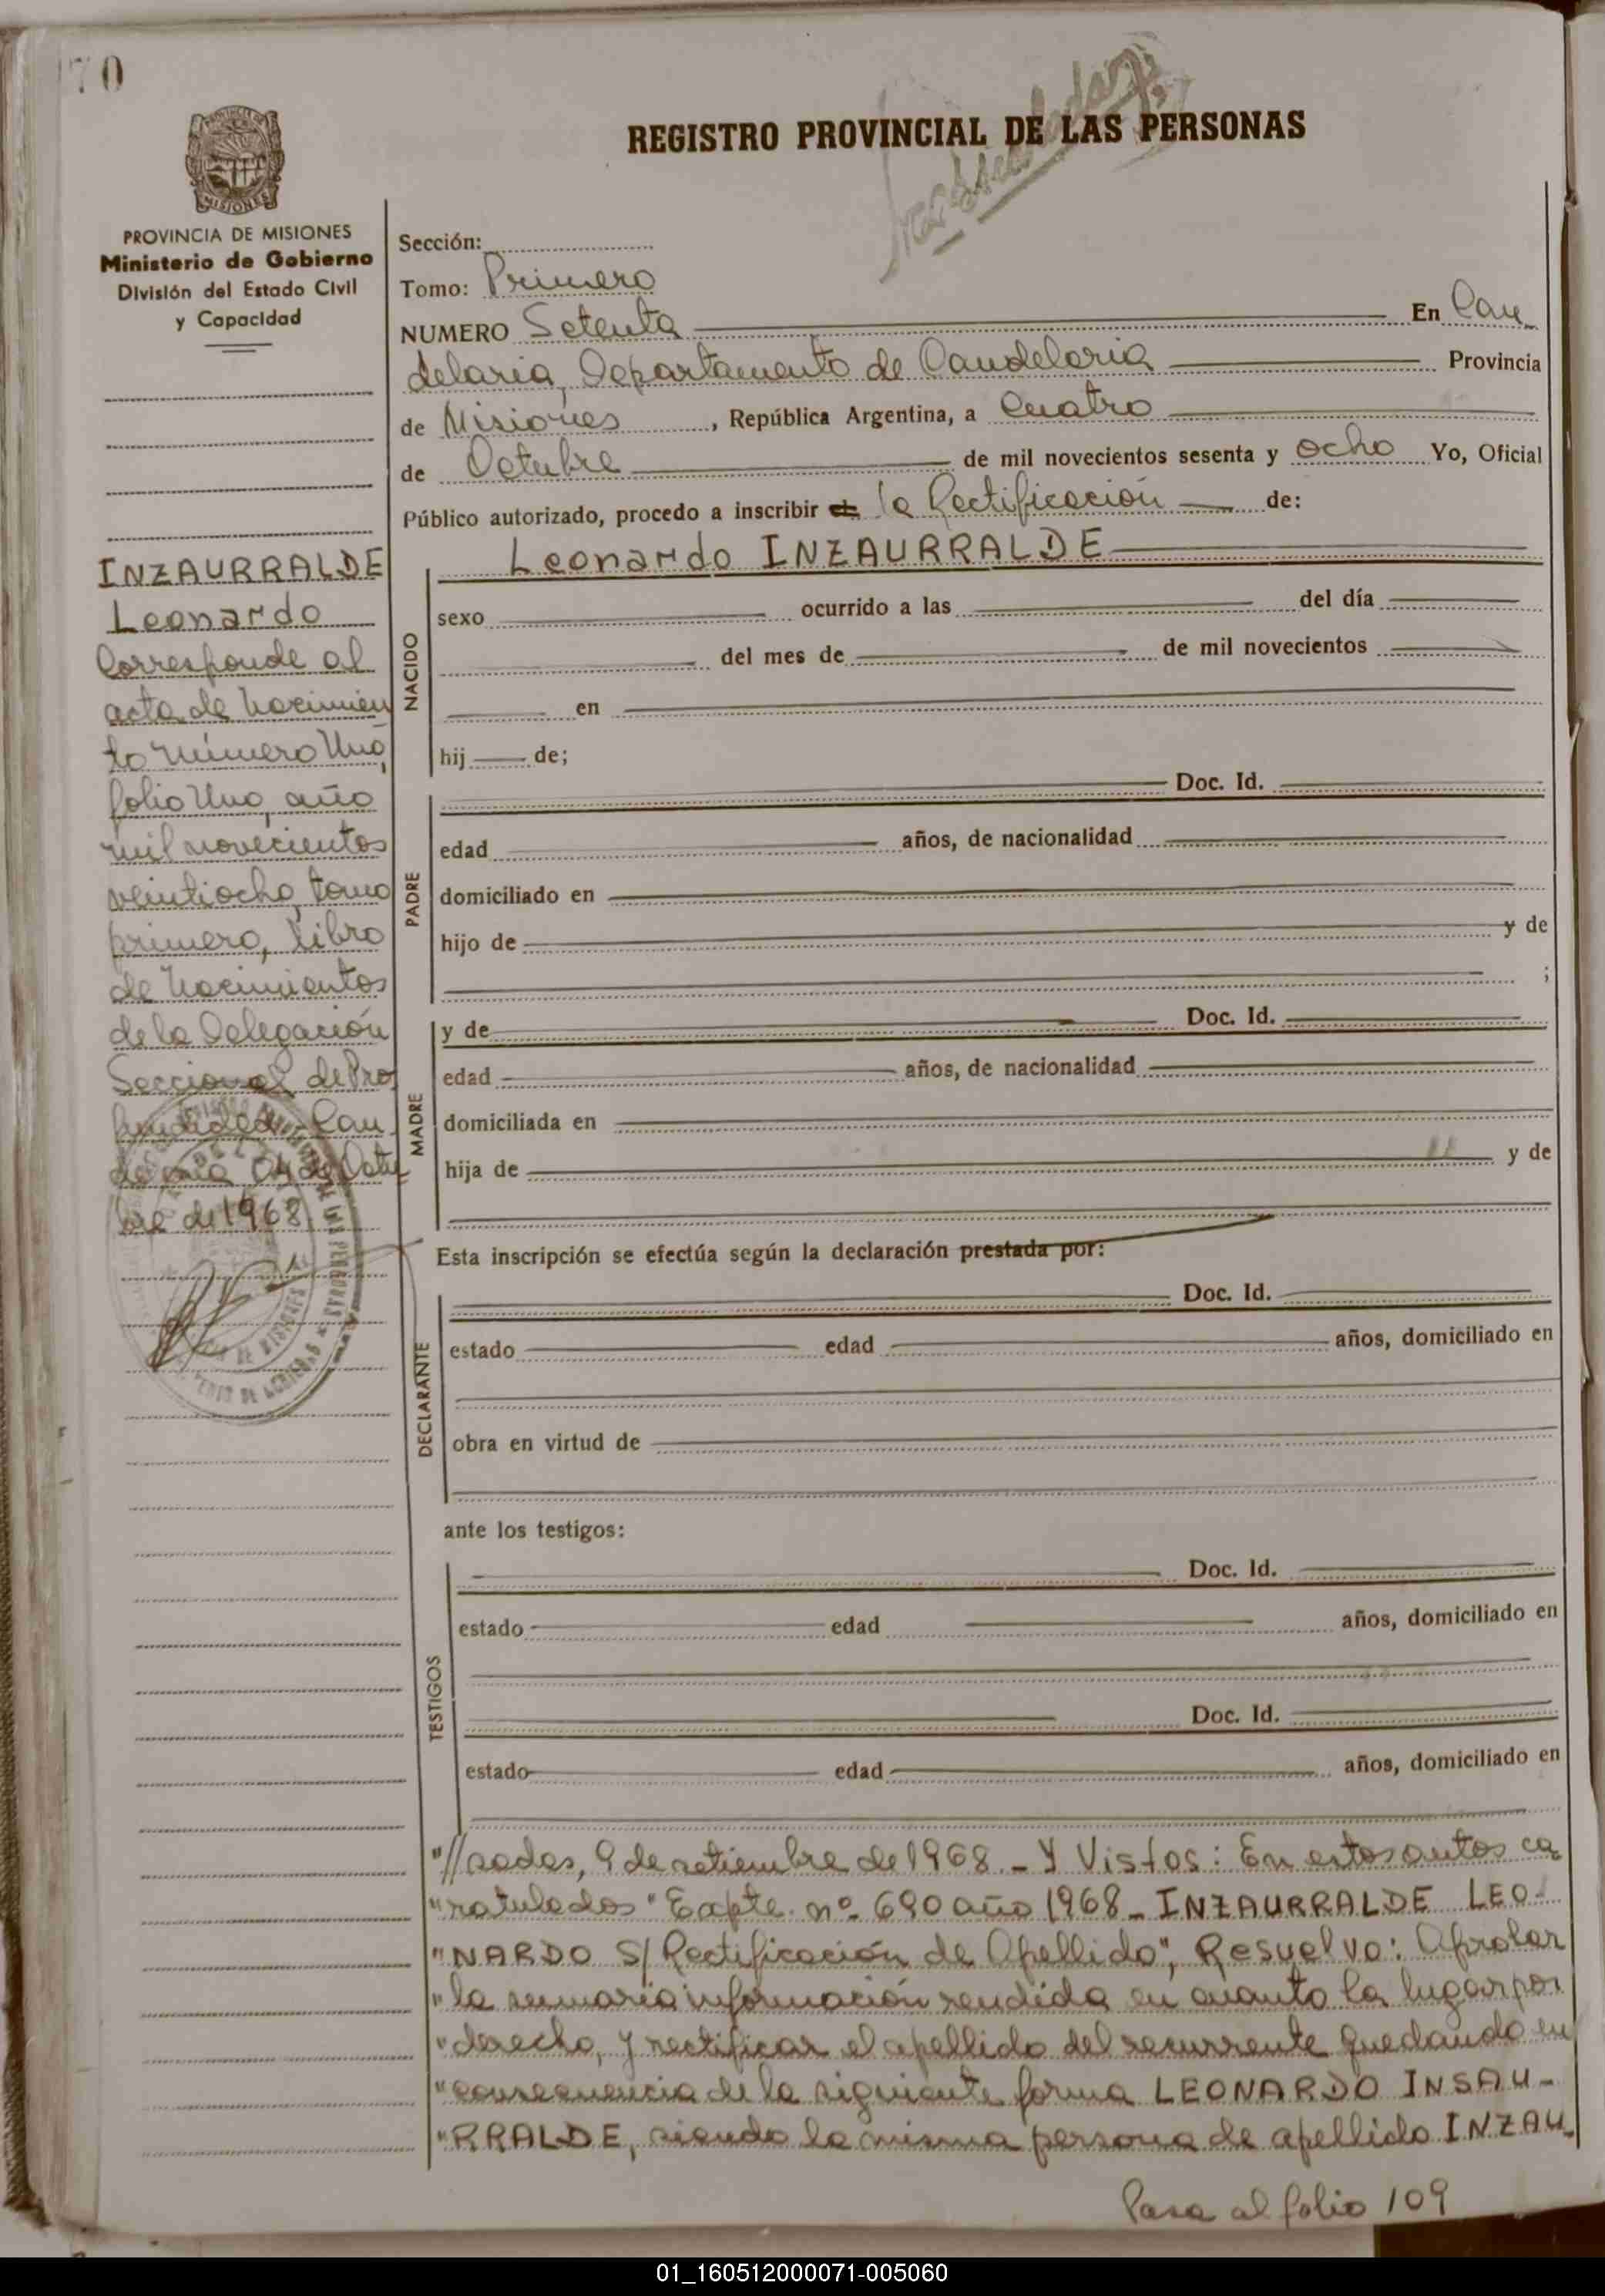 70
REGISTRO PROVINCIAL DE LAS PERSONAS
PROVINCIA DE MISIONES
Ministerio de Gobierno
División del Estado Civil
y Capacidad
INZAURRALDE
Leonardo
Corresponde al
acta de Nacimien
to Número Uno,
folio Uno, año
mil novecientos
veintiocho, tomo
primero, libro
de Nacimientos
de la Delegación
Seccional de Pro
fundidad.- Can
delaria 04 de Octu
bre de 1968
Sección:
Tomo: Primero
NUMERO Setenta En Can
delaria, Departamento de Candelaria Provincia
de Misiones, República Argentina, a Cuatro
de Octubre de mil novecientos sesenta y ocho Yo, Oficial
Público autorizado, procedo a inscribir la Rectificación de:
Leonardo INZAURRALDE
NACIDO
sexo ocurrido a las del día
del mes de de mil novecientos
en
hij de;
PADRE
Doc. Id.
edad años, de nacionalidad
domiciliado en
hijo de y de
;
MADRE
y de Doc. Id.
edad años, de nacionalidad
domiciliada en
hija de y de
Esta inscripción se efectúa según la declaración prestada por:
DECLARANTE
Doc. Id.
estado edad años, domiciliado en
obra en virtud de
ante los testigos:
TESTIGOS
Doc. Id.
estado edad años, domiciliado en
Doc. Id.
estado edad años, domiciliado en
"//sadas, 9 de setiembre de 1968 - Y Vistos: En estos autos ca
"ratulados "Expte. nº 690 año 1968 - INZAURRALDE LEO-
"NARDO S/ Rectificación de Apellido", Resuelvo: Aprobar
"la sumaria información rendida en cuanto ha lugar por
"derecho, y rectificar el apellido del recurrente quedando en
"consecuencia de la siguiente forma LEONARDO INSAU-
"RRALDE, siendo la misma persona de apellido INZAU-
Pasa al folio 109
01_160512000071-005060